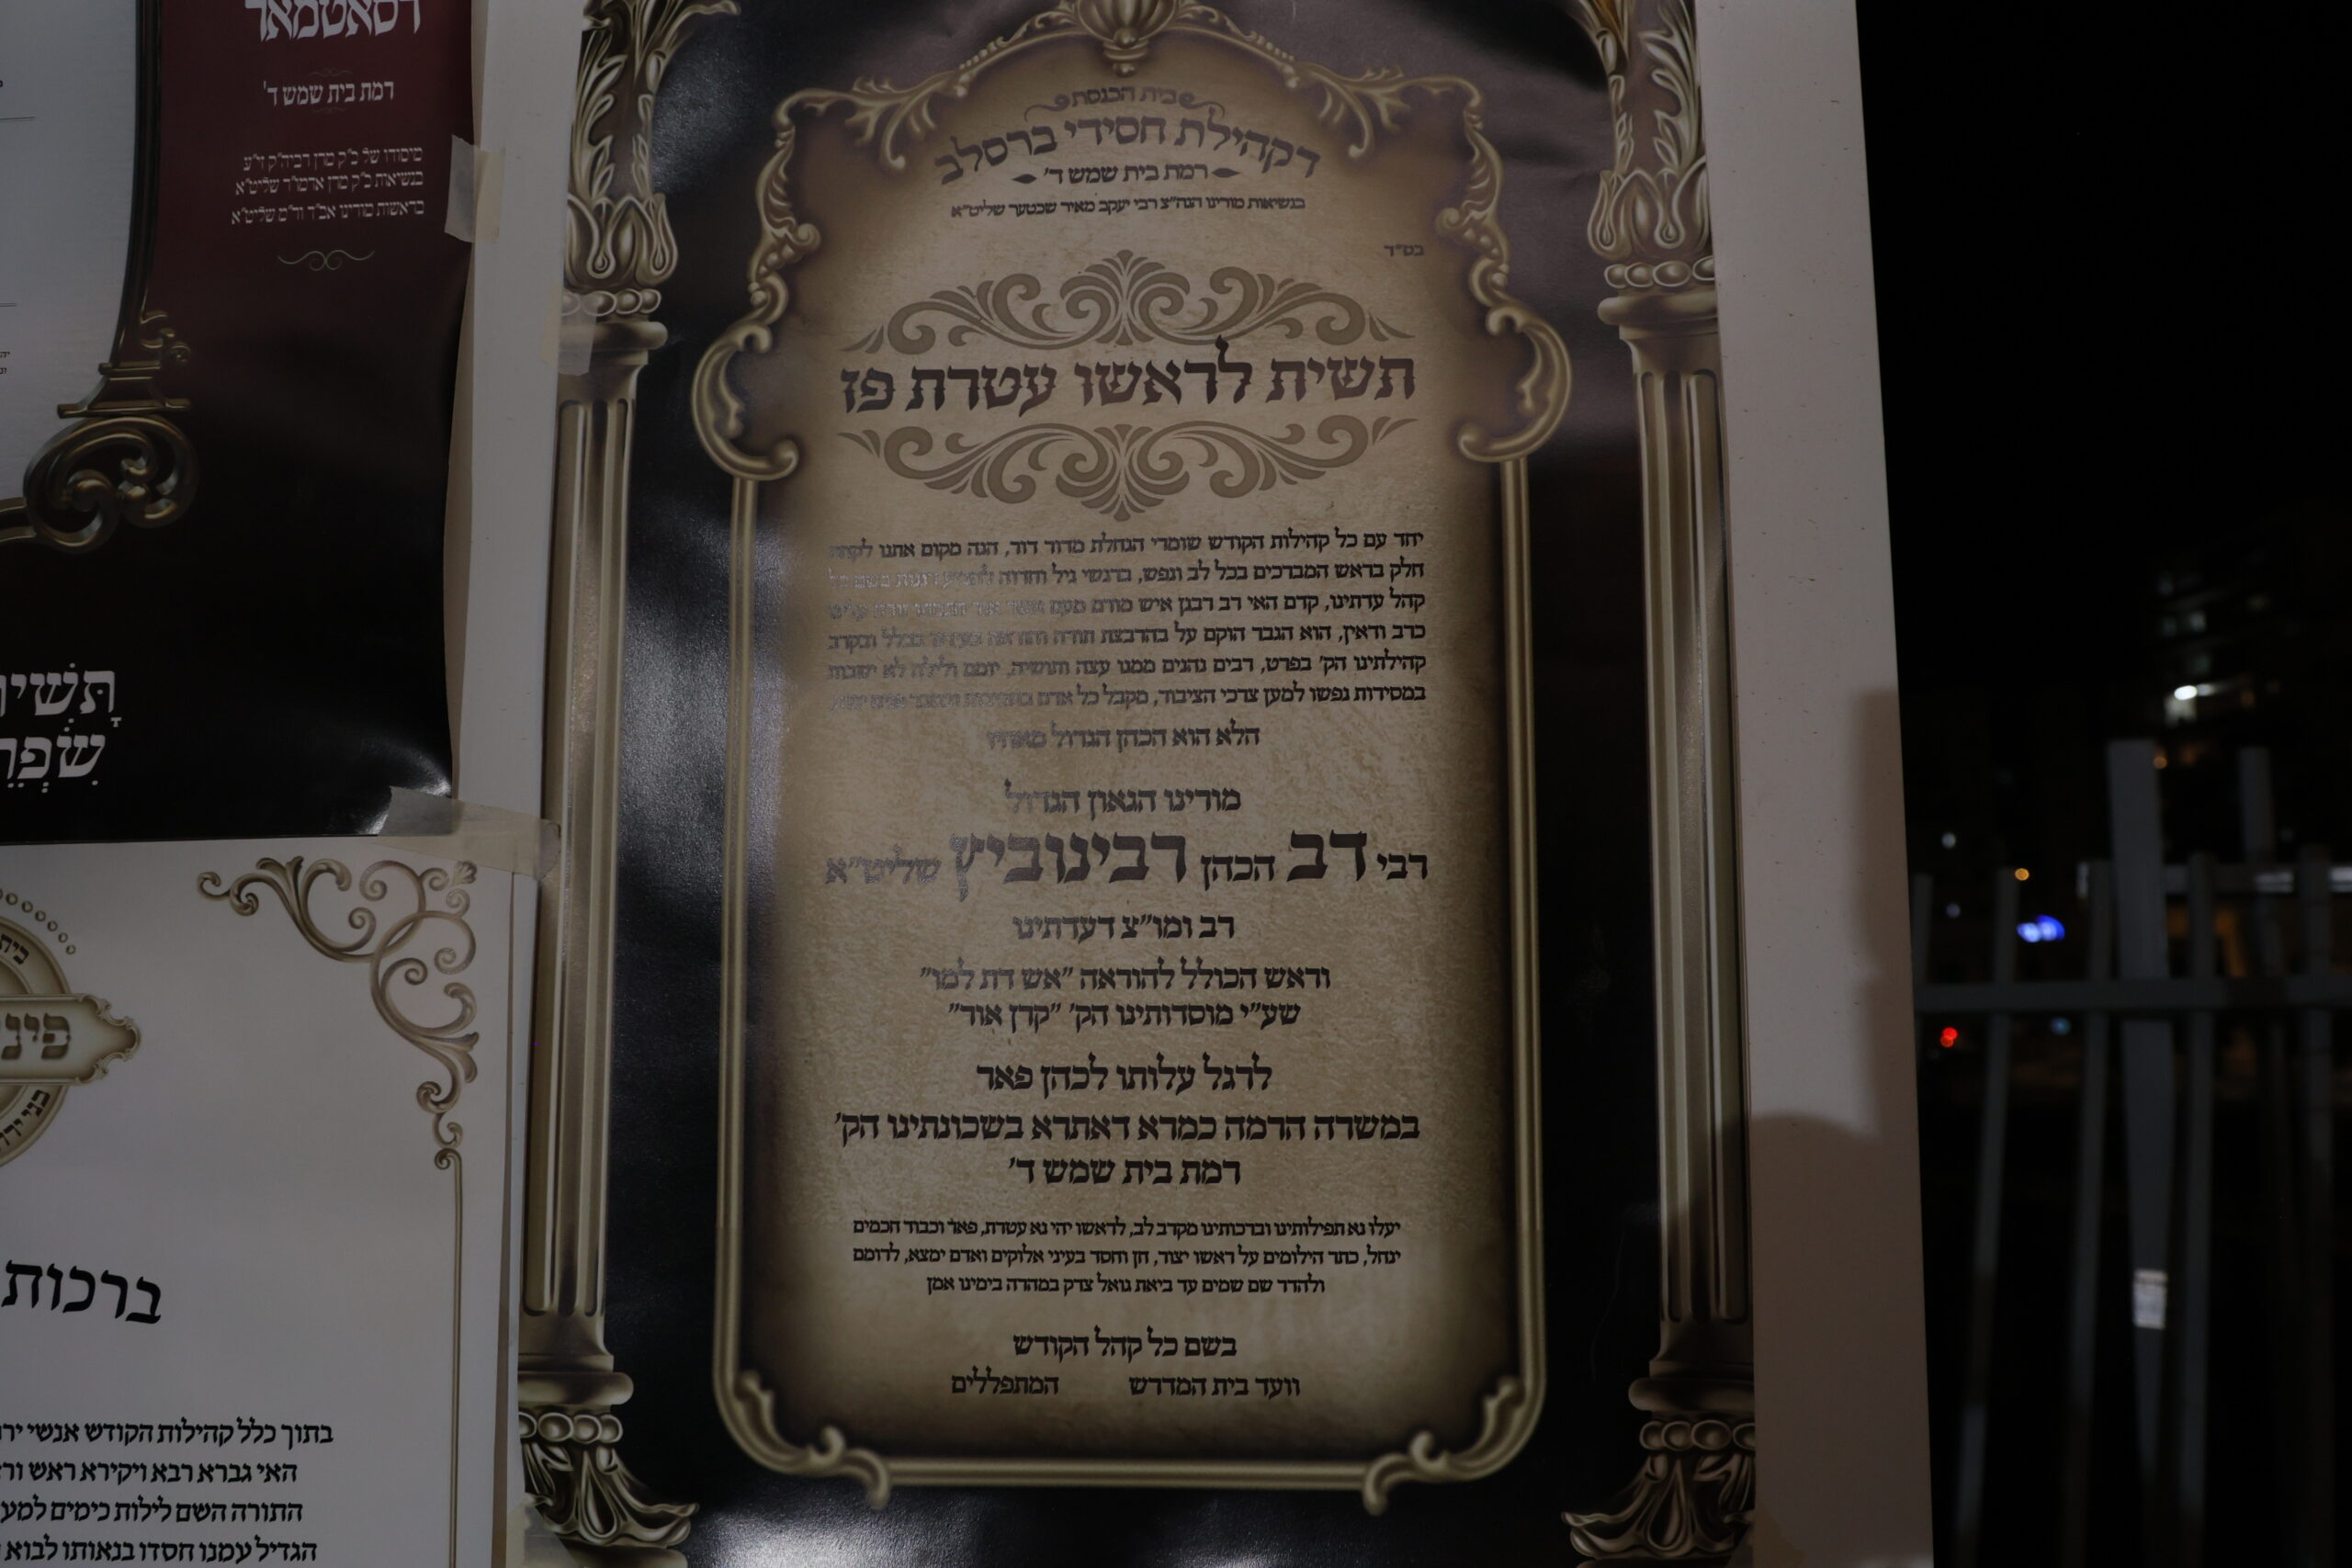 בית הכנסת
דקהילת חסידי ברסלב
רמת בית שמש ד'
בנשיאות מורינו הגה"צ רבי יעקב מאיר שכטער שליט"א
בס"ד
תשית לראשו עטרת פז
יחד עם כל קהילות הקודש שומרי הגחלת מדור דור, הנה מקום אתנו לקחת
חלק בראש המברכים בכל לב ונפש, ברגשי גיל וחדוה
קהל עדתינו, קדם האי רב רבנן איש מורם מעם
כרב ודאין, הוא הגבר הוקם על בהרבצת תורה והוראה בכלל ובקרב
קהילתינו הק' בפרט, רבים נהנים ממנו עצה ותושיה, יומם ולילה לא ישבות
במסירות נפשו למען צרכי הציבור, מקבל כל אדם
הלא הוא הכהן הגדול מאחיו
מורינו הגאון הגדול
רבי דב הכהן רבינוביץ שליט"א
רב ומו"צ דעדתינו
וראש הכולל להוראה "אש דת למו"
שע"י מוסדותינו הק' "קרן אור"
לרגל עלותו לכהן פאר
במשרה הרמה כמרא דאתרא בשכונתינו הק'
רמת בית שמש ד'
יעלו נא תפילותינו וברכותינו מקרב לב, לראשו יהי נא עטרת, פאר וכבוד חכמים
ינחל, כתר הילומים על ראשו יצור, חן וחסד בעיני אלוקים ואדם ימצא, לרומם
ולהדר שם שמים עד ביאת גואל צדק במהרה בימינו אמן
בשם כל קהל הקודש
וועד בית המדרש המתפללים
דסאטמאר
רמת בית שמש ד'
מיסודו של כ"ק מרן רביה"ק זי"ע
בנשיאות כ"ק מרן אדמו"ר שליט"א
בראשות מורינו אב"ד ור"מ שליט"א
ברכות
בתוך כלל קהילות הקודש אנשי
האי גברא רבא ויקירא ראש
התורה השם לילות כימים
הגדיל עמנו חסדו בנאותו לבוא